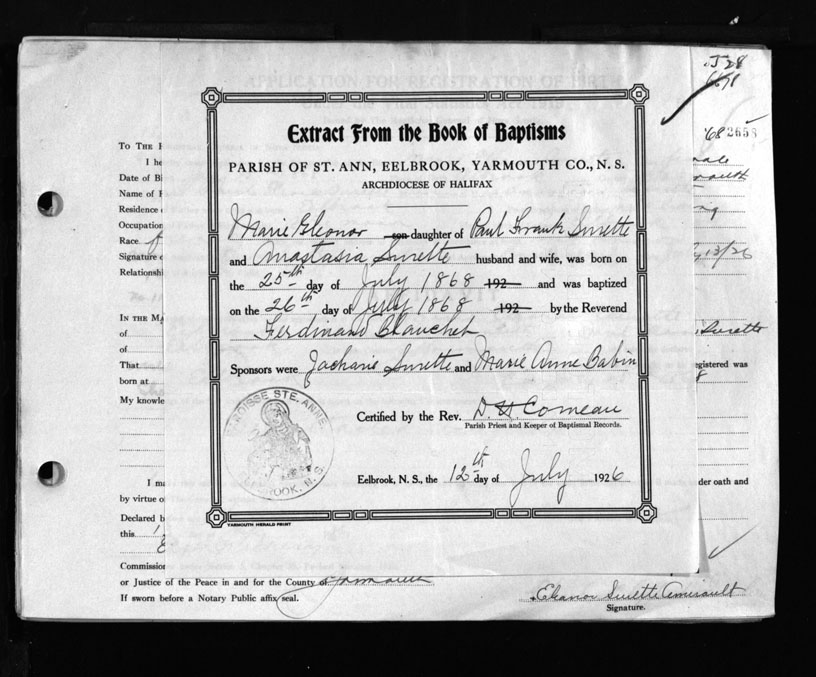 J28
'68 2658
Extract From the Book of Baptisms
PARISH OF ST. ANN, EELBROOK, YARMOUTH CO., N. S.
ARCHDIOCESE OF HALIFAX
Marie Eleonor son daughter of Paul Frank Surette
and Anastasia Surette husband and wife, was born on
the 25th day of July 1868 192 and was baptized
on the 26th day of July 1868 192 by the Reverend
Ferdinand Blanchet
Sponsors were Zacharie Surette and Marie Anne Babin
Certified by the Rev. D. H. Comeau
Parish Priest and Keeper of Baptismal Records.
PAROISSE STE. ANNE
EELBROOK, N. S.
Eelbrook, N. S., the 12th day of July 1926
YARMOUTH HERALD PRINT
TO THE
I he
Date of Bi
Name of
Residence
Occupation
Race
Signature
Relationshi
IN THE MA
of
of
That
egistered was
born at
My knowle
I ma
der oath and
by virtue o
Declared b
this
Commissio
or Justice of the Peace in and for the County of Yarmouth
If sworn before a Notary Public affix seal.
Eleanor Surette Amirault
Signature.